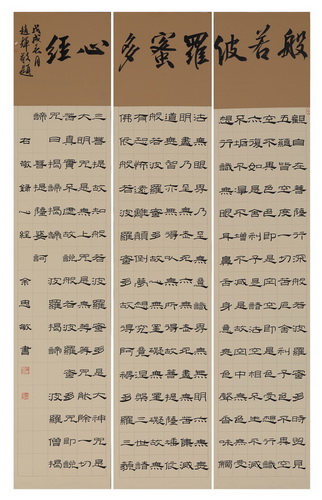 般若波羅蜜多心經
戊戌秋月
敬題
觀自在菩薩行深般若波羅蜜多時照見
五蘊皆空度一切苦厄舍利子色不異空
空不異色色即是空空即是色受想行識
亦復如是舍利子是諸法空相不生不滅
不垢不淨不增不減是故空中無色無受
想行識無眼耳鼻舌身意無色聲香味觸
法無眼界乃至無意識界無無明亦無無
明盡乃至無老死亦無老死盡無苦集滅
道無智亦無得以無所得故菩提薩埵依
般若波羅蜜多故心無罣礙無罣礙故無
有恐怖遠離顛倒夢想究竟涅槃三世諸
佛依般若波羅蜜多故得阿耨多羅三藐
三菩提故知般若波羅蜜多是大神咒是
大明咒是無上咒是無等等咒能除一切
苦真實不虛故說般若波羅蜜多咒即說
咒曰揭諦揭諦波羅揭諦波羅僧揭
諦菩提薩婆訶
右敬錄心經 余思敏書